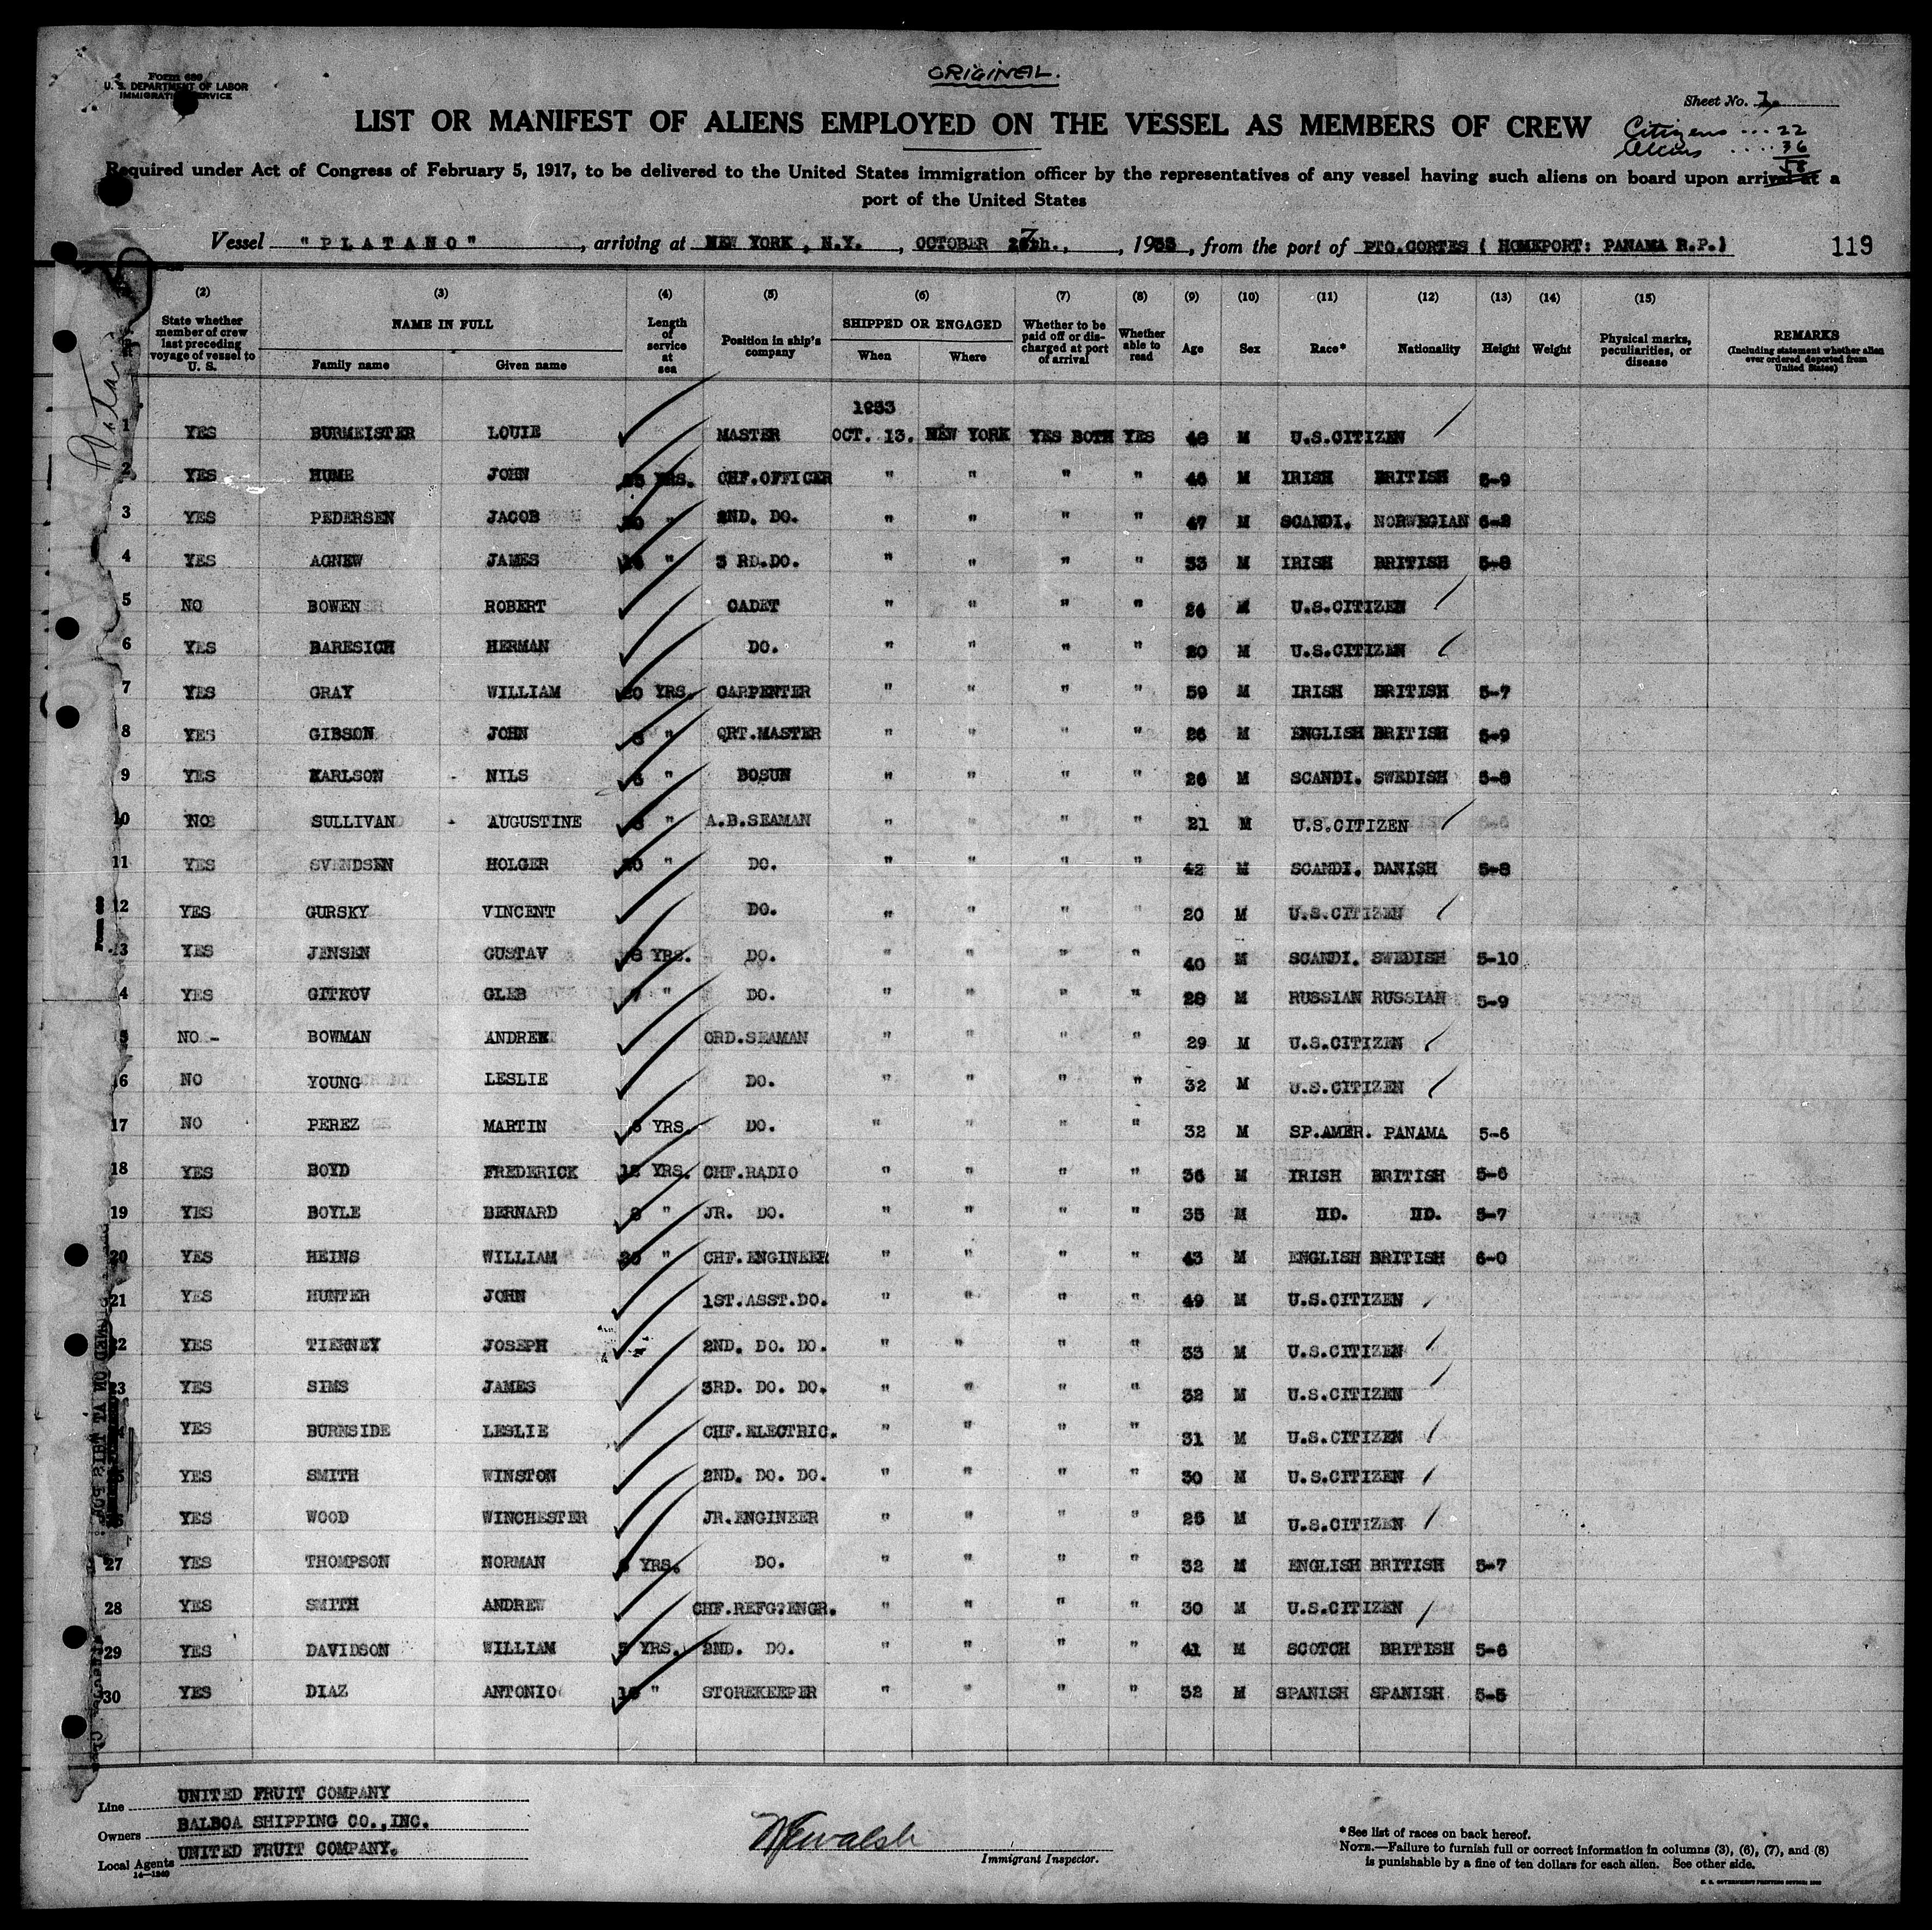 Form 680
U. S. DEPARTMENT OF LABOR
IMMIGRATION SERVICE
ORIGINAL.
Sheet No. 1.
LIST OR MANIFEST OF ALIENS EMPLOYED ON THE VESSEL AS MEMBERS OF CREW
Citizens ... 22
Aliens .... 36
58
Required under Act of Congress of February 5, 1917, to be delivered to the United States immigration officer by the representatives of any vessel having such aliens on board upon arrival at a
port of the United States
Vessel "PLATANO", arriving at NEW YORK, N.Y., OCTOBER 27th., 1933, from the port of PTO.CORTES ( HOMEPORT: PANAMA R.P.) 119
(2) (3) (4) (5) (6) (7) (8) (9) (10) (11) (12) (13) (14) (15)
State whether member of crew last preceding voyage of vessel to U. S. NAME IN FULL Family name Given name Length of service at sea Position in ship's company SHIPPED OR ENGAGED When Where Whether to be paid off or discharged at port of arrival Whether able to read Age Sex Race* Nationality Height Weight Physical marks, peculiarities, or disease REMARKS (Including statement whether alien ever ordered deported from United States)
1933
1 YES BURMEISTER LOUIE MASTER OCT. 13. NEW YORK YES BOTH YES 48 M U.S.CITIZEN
2 YES HUME JOHN YRS. CHF.OFFICER " " " " 46 M IRISH BRITISH 5-9
3 YES PEDERSEN JACOB " 2ND. DO. " " " " 47 M SCANDI. NORWEGIAN 6-2
4 YES AGNEW JAMES " 3 RD.DO. " " " " 33 M IRISH BRITISH 5-8
5 NO BOWEN ROBERT CADET " " " " 24 M U.S.CITIZEN
6 YES BARESICH HERMAN DO. " " " " 20 M U.S.CITIZEN
7 YES GRAY WILLIAM 20 YRS. CARPENTER " " " " 59 M IRISH BRITISH 5-7
8 YES GIBSON JOHN " QRT.MASTER " " " " 26 M ENGLISH BRITISH 5-9
9 YES KARLSON NILS " BOSUN " " " " 26 M SCANDI. SWEDISH 5-8
10 NO SULLIVAN AUGUSTINE " A.B.SEAMAN " " " " 21 M U.S.CITIZEN
11 YES SVENDSEN HOLGER 20 " DO. " " " " 42 M SCANDI. DANISH 5-8
12 YES GURSKY VINCENT DO. " " " " 20 M U.S.CITIZEN
13 YES JENSEN GUSTAV 8 YRS. DO. " " " " 40 M SCANDI. SWEDISH 5-10
4 YES GITKOV GLEB 7 " DO. " " " " 28 M RUSSIAN RUSSIAN 5-9
5 NO - BOWMAN ANDREW ORD.SEAMAN " " " " 29 M U.S.CITIZEN
16 NO YOUNG LESLIE DO. " " " " 32 M U.S.CITIZEN
17 NO PEREZ MARTIN 6 YRS. DO. " " " " 32 M SP.AMER. PANAMA 5-6
18 YES BOYD FREDERICK 12 YRS. CHF.RADIO " " " " 36 M IRISH BRITISH 5-6
19 YES BOYLE BERNARD 8 " JR. DO. " " " " 35 M DO. DO. 5-7
20 YES HEINS WILLIAM 20 " CHF.ENGINEER " " " " 43 M ENGLISH BRITISH 6-0
21 YES HUNTER JOHN 1ST.ASST.DO. " " " " 49 M U.S.CITIZEN
22 YES TIERNEY JOSEPH 2ND. DO. DO. " " " " 33 M U.S.CITIZEN
23 YES SIMS JAMES 3RD. DO. DO. " " " " 32 M U.S.CITIZEN
YES BURNSIDE LESLIE CHF.ELECTRIC. " " " " 31 M U.S.CITIZEN
YES SMITH WINSTON 2ND. DO. DO. " " " " 30 M U.S.CITIZEN
YES WOOD WINCHESTER JR.ENGINEER " " " " 25 M U.S.CITIZEN
27 YES THOMPSON NORMAN YRS. DO. " " " " 32 M ENGLISH BRITISH 5-7
28 YES SMITH ANDREW CHF.REFG?ENGR. " " " " 30 M U.S.CITIZEN
29 YES DAVIDSON WILLIAM 5 YRS. 2ND. DO. " " " " 41 M SCOTCH BRITISH 5-6
30 YES DIAZ ANTONIO " STOREKEEPER " " " " 32 M SPANISH SPANISH 5-5
Form 680
Line UNITED FRUIT COMPANY
Owners BALBOA SHIPPING CO.,INC.
Local Agents UNITED FRUIT COMPANY.
14—1240
Immigrant Inspector.
*See list of races on back hereof.
NOTE.—Failure to furnish full or correct information in columns (3), (6), (7), and (8)
is punishable by a fine of ten dollars for each alien. See other side.